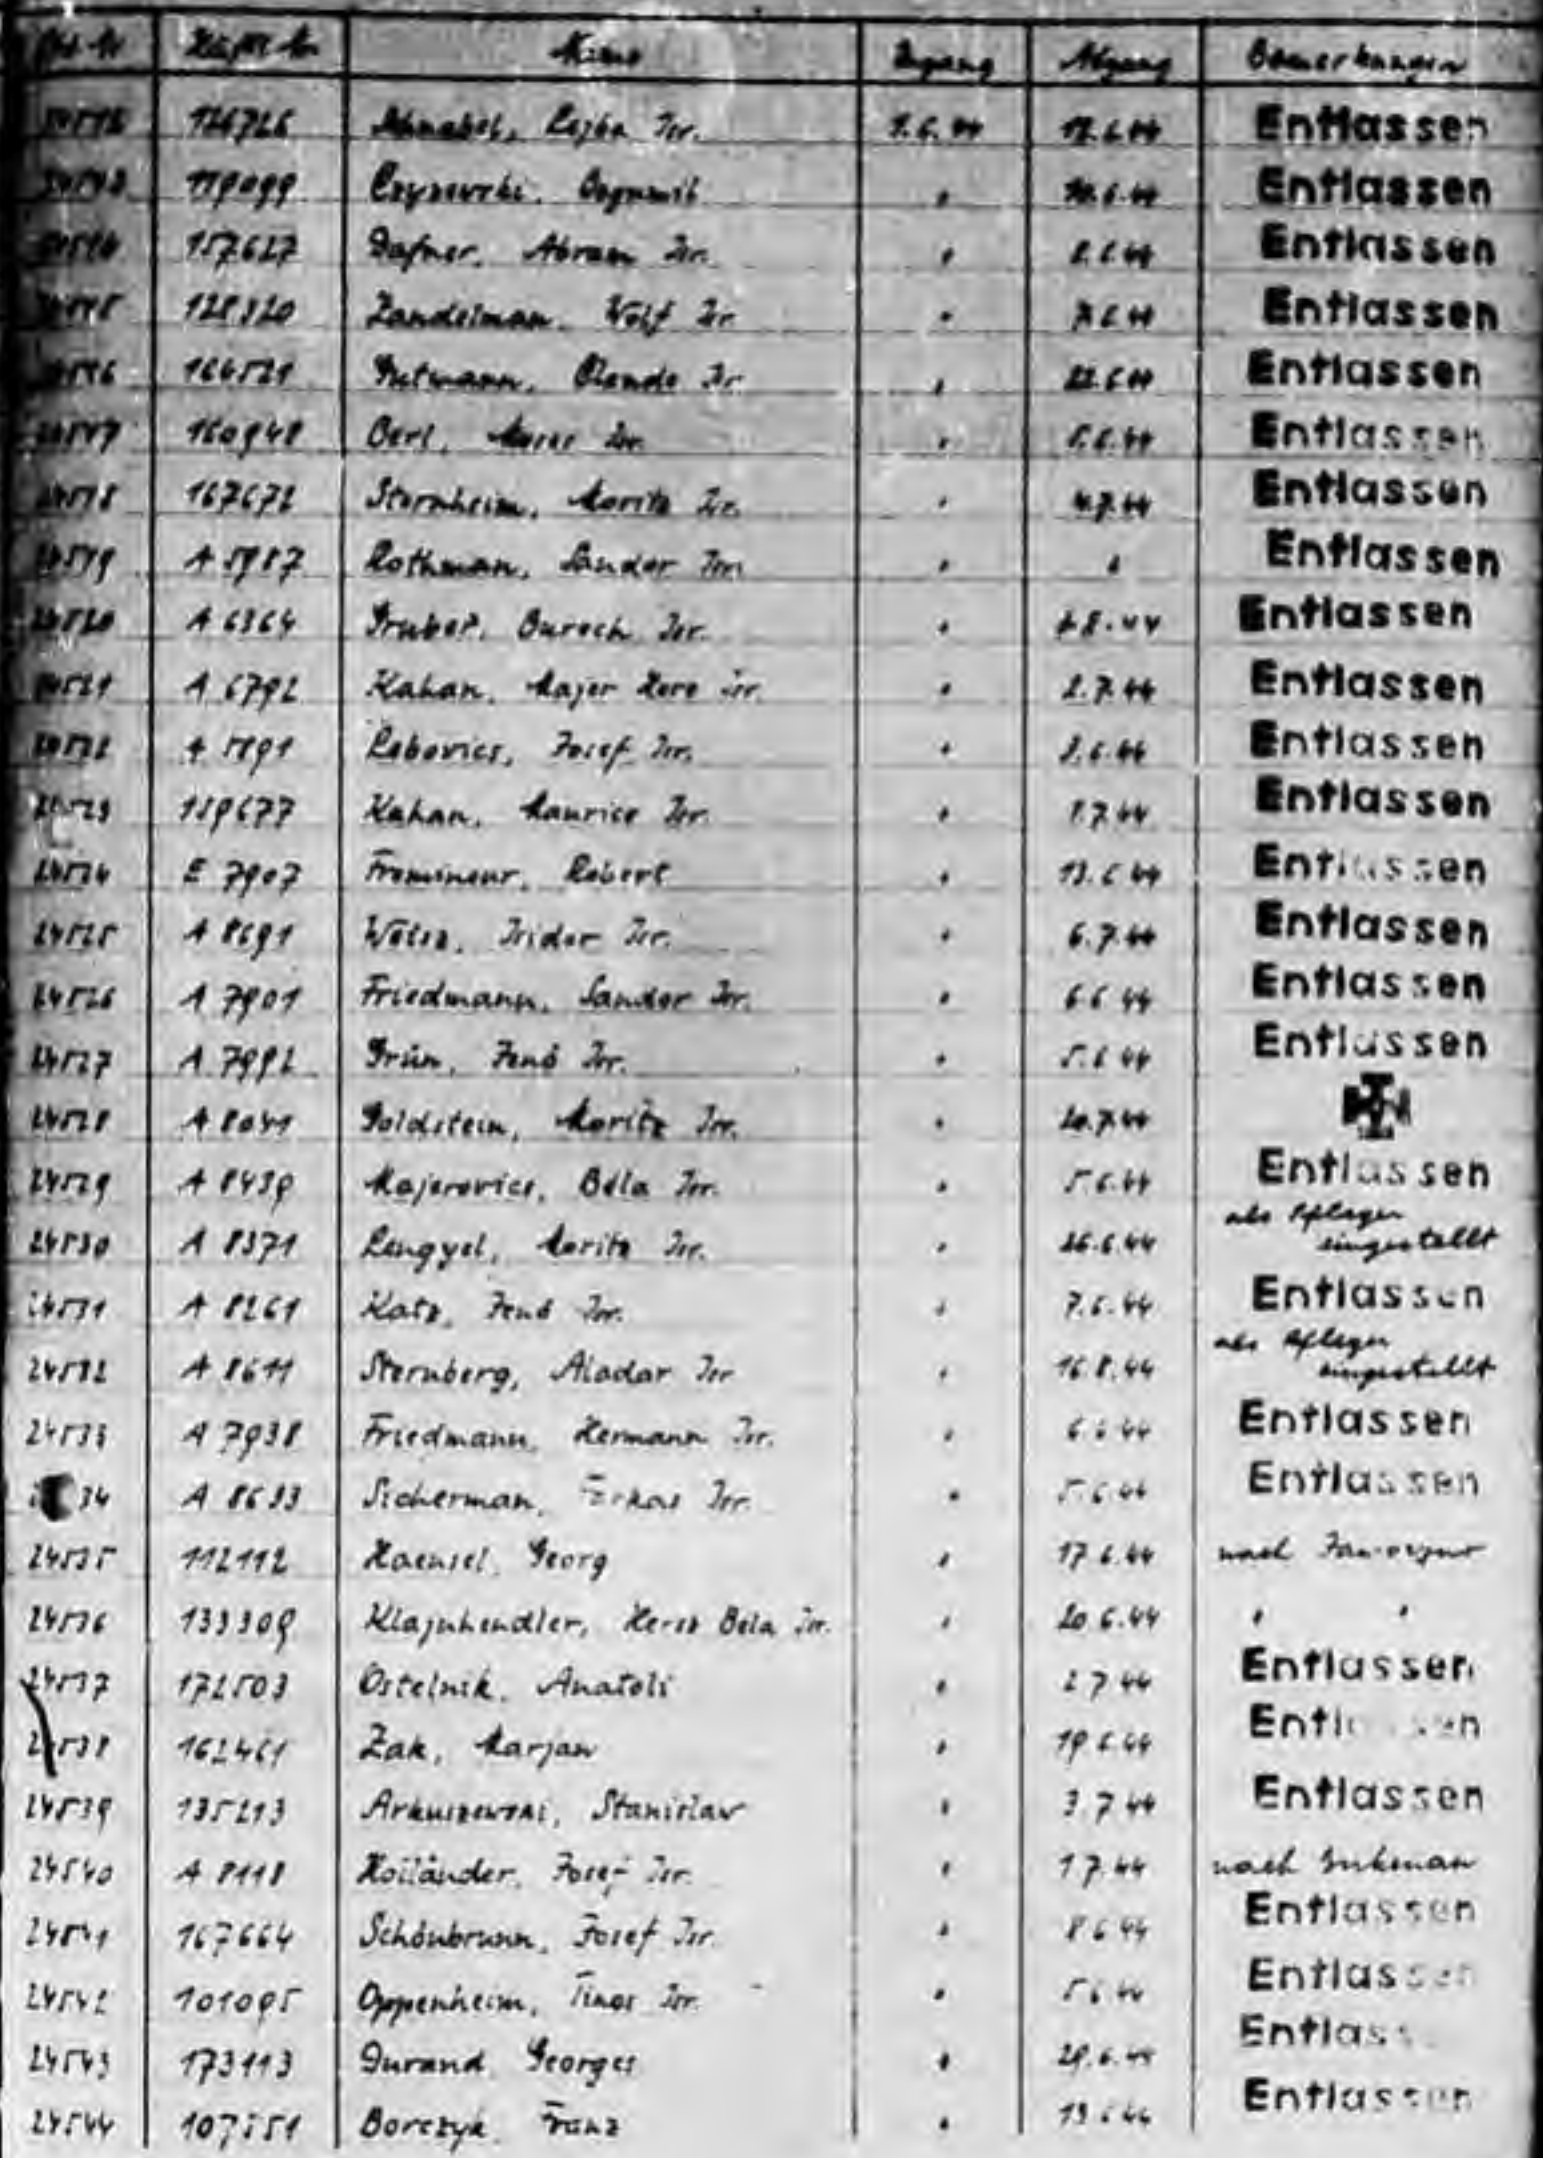 Name Zugang Abgang Bemerkungen
126726 Schnabel, Lejba Isr. 1.6.44 Entlassen
119099 Czyzewski, Bogumil " Entlassen
157627 Dafner, Abram Isr. " 8.6.44 Entlassen
128320 Zandelman, Wolf Isr. " 7.6.44 Entlassen
164521 Gutmann, Isr. " Entlassen
160948 Berl, Moses Isr. " 5.6.44 Entlassen
24518 167672 Sternheim, Moritz Isr. " 4.7.44 Entlassen
24519 A 5987 Rothman, Sandor Isr. " " Entlassen
24520 A 6364 Gruber, Burech Isr. " Entlassen
24521 A 6792 Kahan, Majer Herc Isr. " 2.7.44 Entlassen
24522 A 5891 Lebovics, Josef Isr. " 8.6.44 Entlassen
24523 Kahan, Maurice Isr. " 1.7.44 Entlassen
24524 E 7907 Fromineur, Robert " 13.6.44 Entlassen
24525 A 8691 Weisz, Isidor Isr. " 6.7.44 Entlassen
24526 A 7901 Friedmann, Sandor Isr. " 6.6.44 Entlassen
24527 A 7992 Grün, Jenö Isr. " 5.6.44 Entlassen
24528 A 8041 Goldstein, Moritz Isr. " 20.7.44
24529 A 8439 Majerovics, Béla Isr. " 5.6.44 Entlassen
24530 A 8371 Lengyel, Moritz Isr. " 26.6.44 als Pfleger eingestellt
24531 A 8261 Katz, Jenö Isr. " 7.6.44 Entlassen
24532 A 8611 Sternberg, Aladar Isr " 16.8.44 als Pfleger eingestellt
24533 A 7938 Friedmann, Hermann Isr. " 6.6.44 Entlassen
34 A 8633 Sicherman, Farkas Isr. " 5.6.44 Entlassen
24535 112112 Haensel, Georg " 17.6.44 nach
24536 133309 Klajnhendler, Hersz Bela Isr. " 20.6.44 " "
24537 172503 Ostelnik, Anatoli " 2.7.44 Entlassen
24538 162461 Zak, Marjan " 19.6.44 Entlassen
24539 135213 Arkuszewski, Stanislav " 3.7.44 Entlassen
24540 A 8118 Holländer, Josef Isr. " 1.7.44 nach Birkenau
24541 167664 Schönbrunn, Josef Isr. " 8.6.44 Entlassen
24542 101095 Oppenheim, Isr. " 5.6.44 Entlassen
24543 173113 Durand, Georges " 29.6.44 Entlassen
24544 107551 Borczyk, Franz " 13.6.44 Entlassen